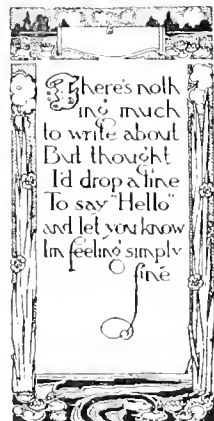 There's noth
ing much
to write about
But thought
I'd drop a line
To say "Hello"
and let you know
Im feeling simply
fine